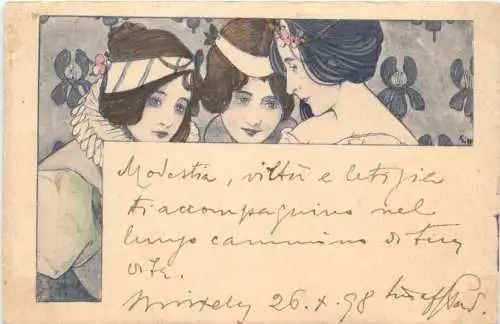 Modestia, viltù e letizia
ti accompagnino nel
lungo cammino di tua
vita.
26.X.98